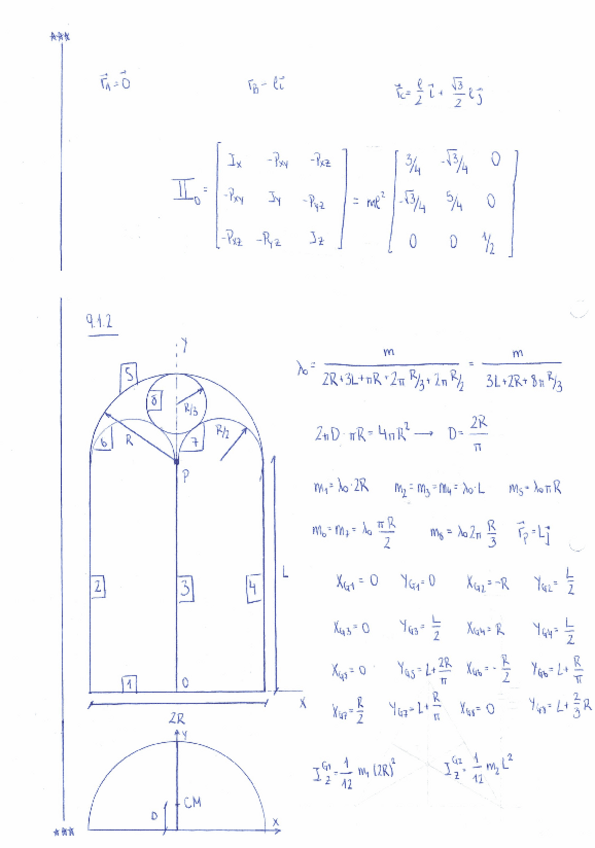 ***
r⃗A = 0⃗    r⃗B = ℓi⃗    r⃗C = ℓ/2 i⃗ + √3/2 ℓj⃗
II₀ = [ Ix -Pxy -Pxz ; -Pxy Iy -Pyz ; -Pxz -Pyz Iz ] = mℓ² [ 3/4 -√3/4 0 ; -√3/4 5/4 0 ; 0 0 1/2 ]
9.1.2
y
5
8
R/3
6
R
7
R/2
P
L
2
3
4
1
O
x
2R
λ₀ = m / (2R+3L+πR+2π R/3+2π R/2) = m / (3L+2R+8π R/3)
2πD · πR = 4πR² → D = 2R/π
m₁ = λ₀·2R    m₂ = m₃ = m₄ = λ₀·L    m₅ = λ₀πR
m₆ = m₇ = λ₀ πR/2    m₈ = λ₀2π R/3    r⃗P = Lj⃗
XG1 = 0    YG1 = 0    XG2 = -R    YG2 = L/2
XG3 = 0    YG3 = L/2    XG4 = R    YG4 = L/2
XG5 = 0    YG5 = L+2R/π    XG6 = -R/2    YG6 = L+R/π
XG7 = R/2    YG7 = L+R/π    XG8 = 0    YG8 = L+2/3 R
y
D
CM
x
IzG1 = 1/12 m₁(2R)²    IzG2 = 1/12 m₂L²
***